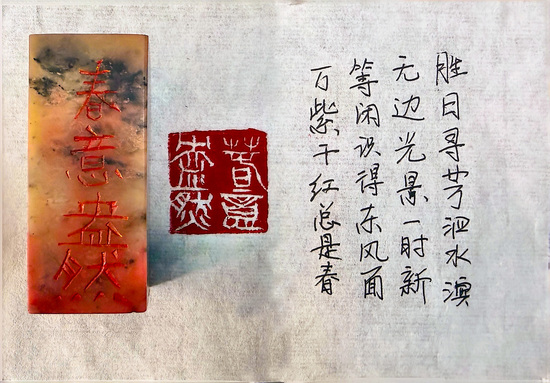 春意盎然
春意
盎然
胜日寻芳泗水滨
无边光景一时新
等闲识得东风面
万紫千红总是春